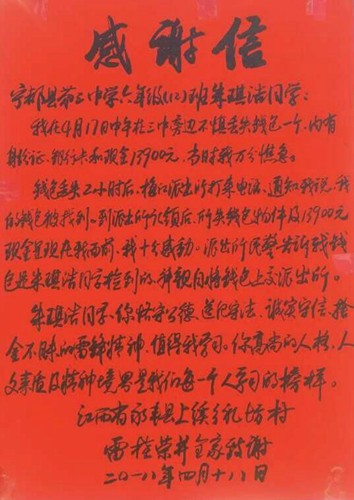 感谢信
宁都县第三中学六年级(12)班朱琪浩同学:
我在4月17日中午在三中旁边不慎丢失钱包一个,内有
身份证、银行卡和现金13900元,当时我万分焦急。
钱包丢失2小时后,梅江派出所打来电话,通知我说,我
的钱包被找到。到派出所认领后,所失钱包物件及13900元
现金呈现在我面前,我十分感动。派出所民警告诉我钱
包是朱琪浩同学捡到的,并亲自将钱包上交派出所。
朱琪浩同学,你恪守公德、遵纪守法、诚实守信、拾
金不昧的雷锋精神,值得我学习。你高尚的人格、人
文素质及精神境界是我们每一个人学习的榜样。
江西省 县上 乡礼坊村
雷 荣并全家致谢
二〇一八年四月十八日